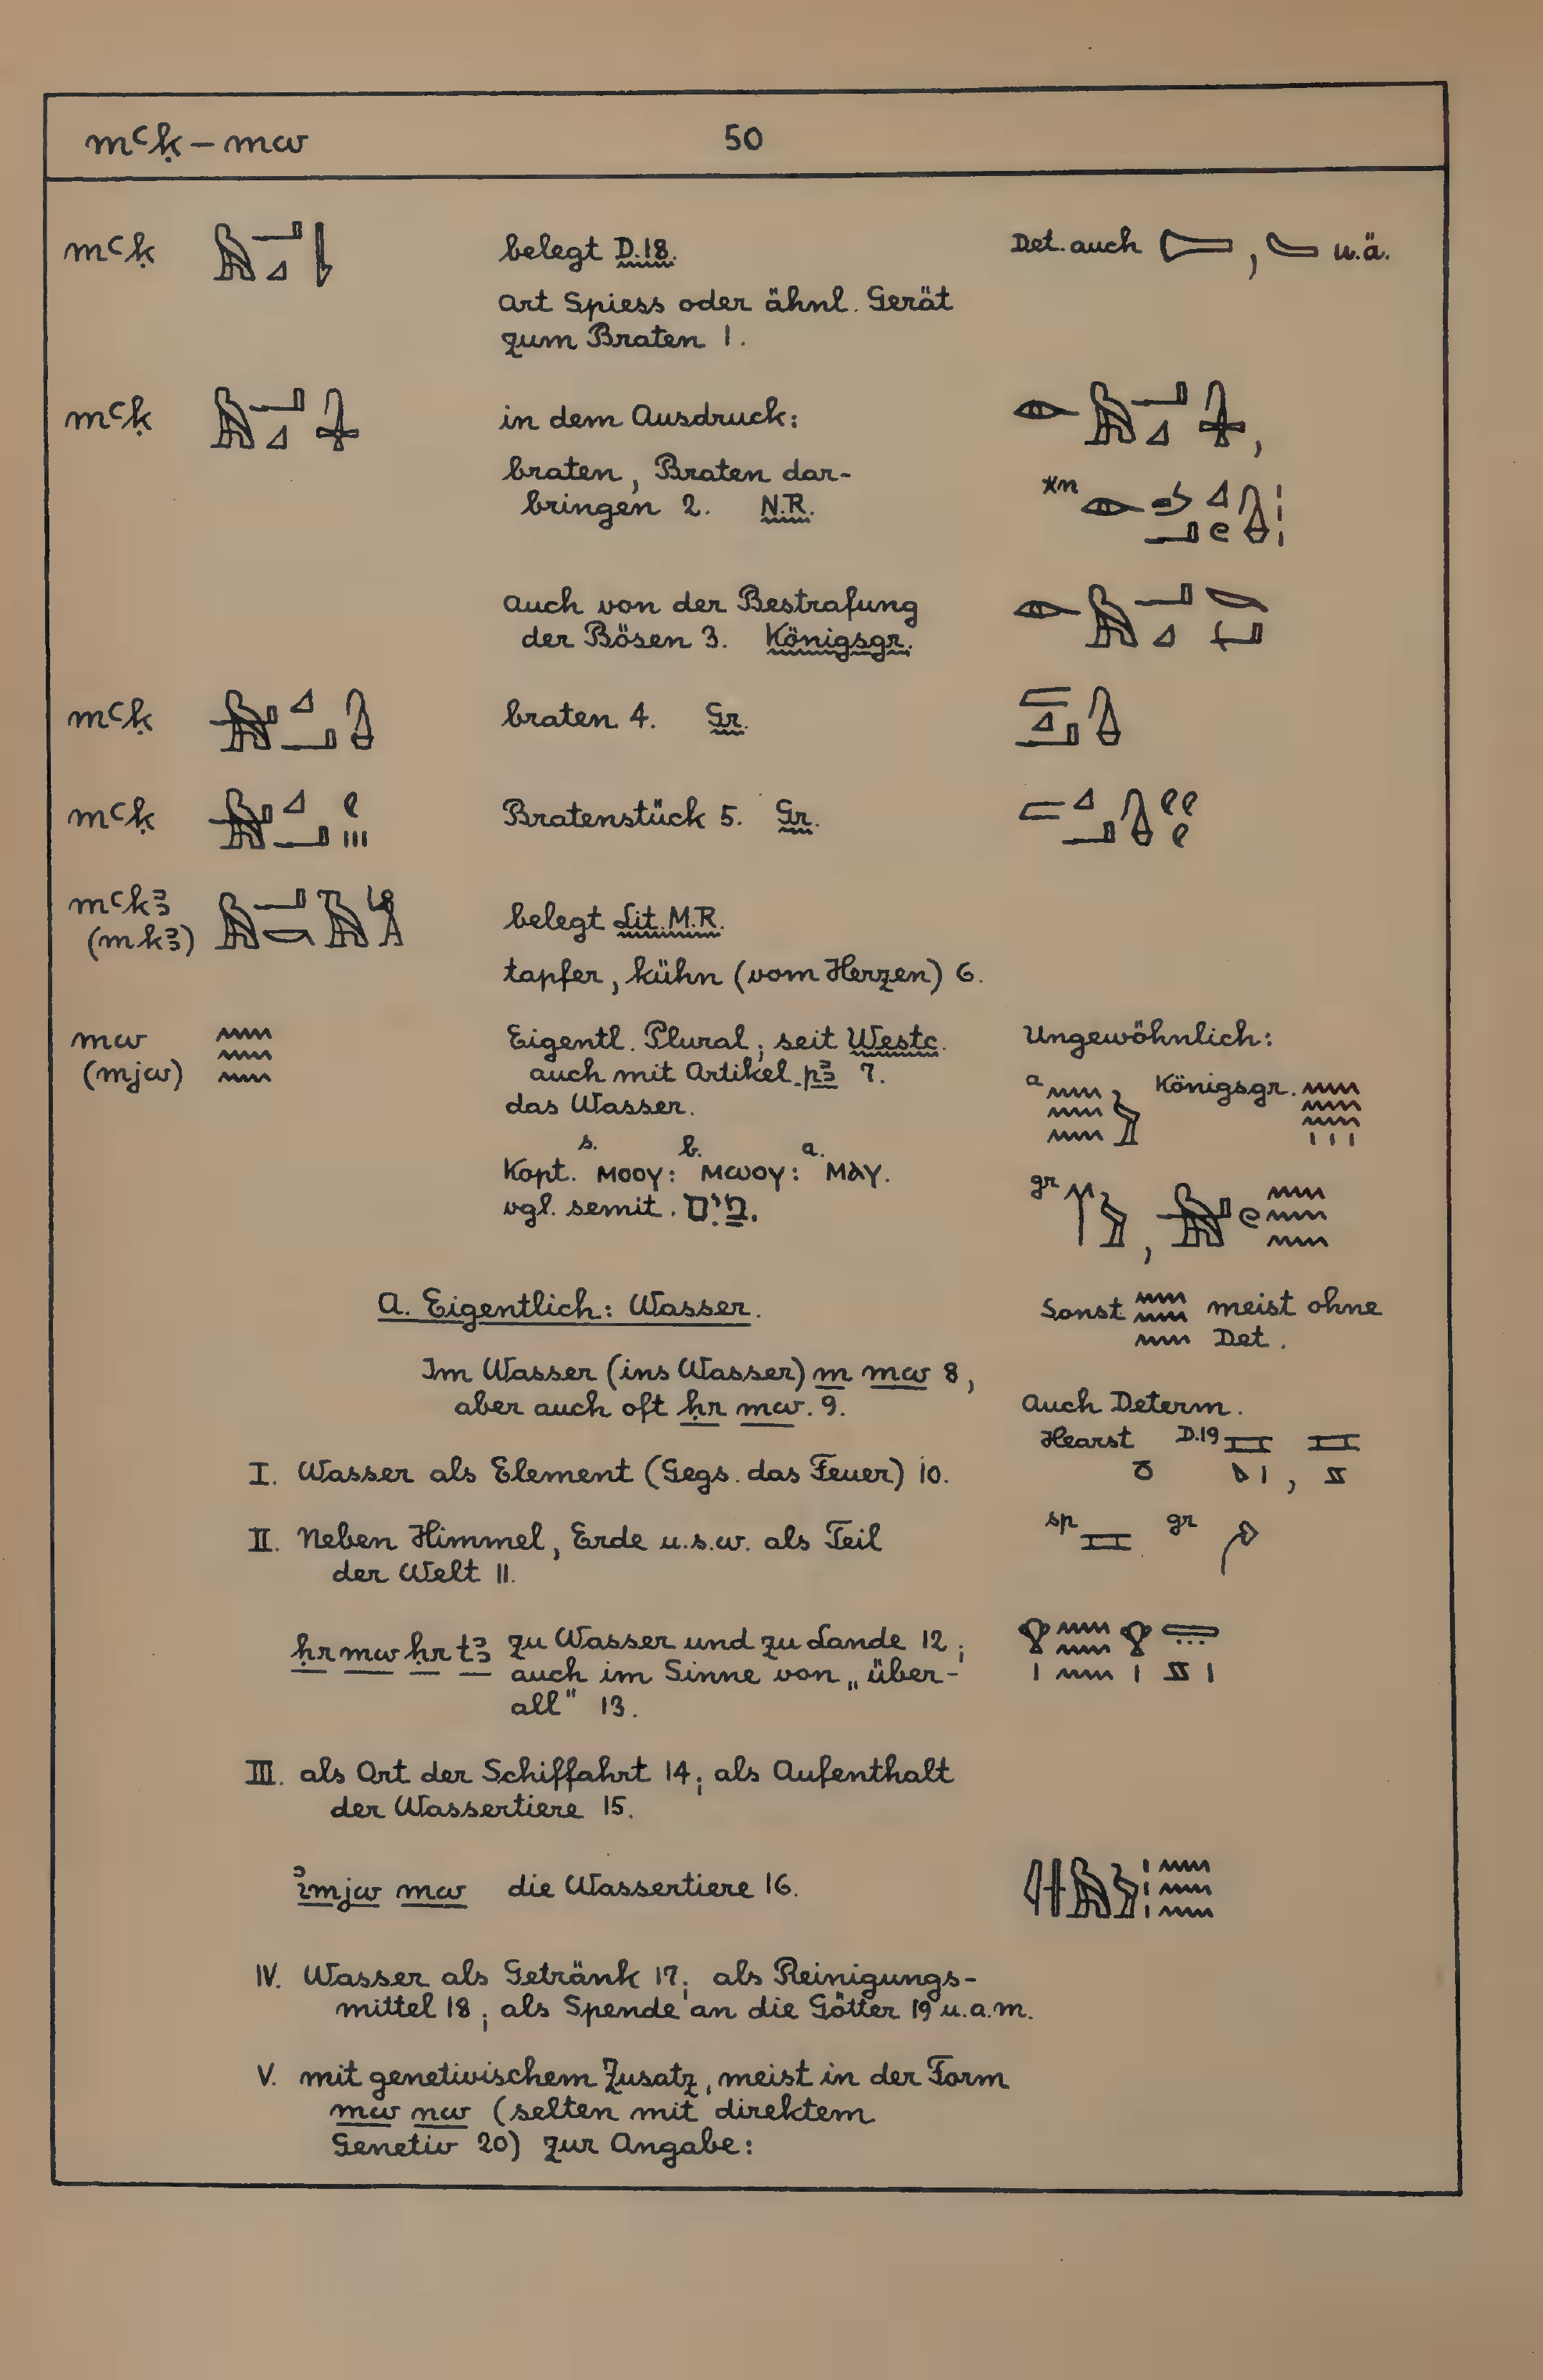 mꜥḳ – mw 50
mꜥḳ belegt D.18. Det. auch , u.ä.
Art Spiess oder ähnl. Gerät
zum Braten 1.
mꜥḳ in dem Ausdruck:
braten, Braten dar-
bringen 2. N.R. *n
auch von der Bestrafung
der Bösen 3. Königsgr.
mꜥḳ braten 4. Gr.
mꜥḳ Bratenstück 5. Gr.
mꜥkꜣ
(mkꜣ) belegt Lit. M.R.
tapfer, kühn (vom Herzen) 6.
mw Eigentl. Plural; seit Westc. Ungewöhnlich:
(mjw) auch mit Artikel pꜣ 7.
das Wasser. a Königsgr.
s. b. a.
Kopt. ⲙⲟⲟⲩ: ⲙⲱⲟⲩ: ⲙⲁⲩ.
vgl. semit. מַיִם. gr ,
A. Eigentlich: Wasser. Sonst 𓈗 meist ohne
Det.
Im Wasser (ins Wasser) m mw 8,
aber auch oft ḥr mw. 9. Auch Determ.
Hearst D.19 ,
I. Wasser als Element (Gegs. das Feuer) 10.
II. Neben Himmel, Erde u.s.w. als Teil sp gr
der Welt 11.
ḥr mw ḥr tꜣ zu Wasser und zu Lande 12;
auch im Sinne von „über-
all" 13.
III. als Ort der Schiffahrt 14; als Aufenthalt
der Wassertiere 15.
ꞽmjw mw die Wassertiere 16.
IV. Wasser als Getränk 17; als Reinigungs-
mittel 18; als Spende an die Götter 19 u.a.m.
V. mit genetivischem Zusatz, meist in der Form
mw nw (selten mit direktem
Genetiv 20) zur Angabe: